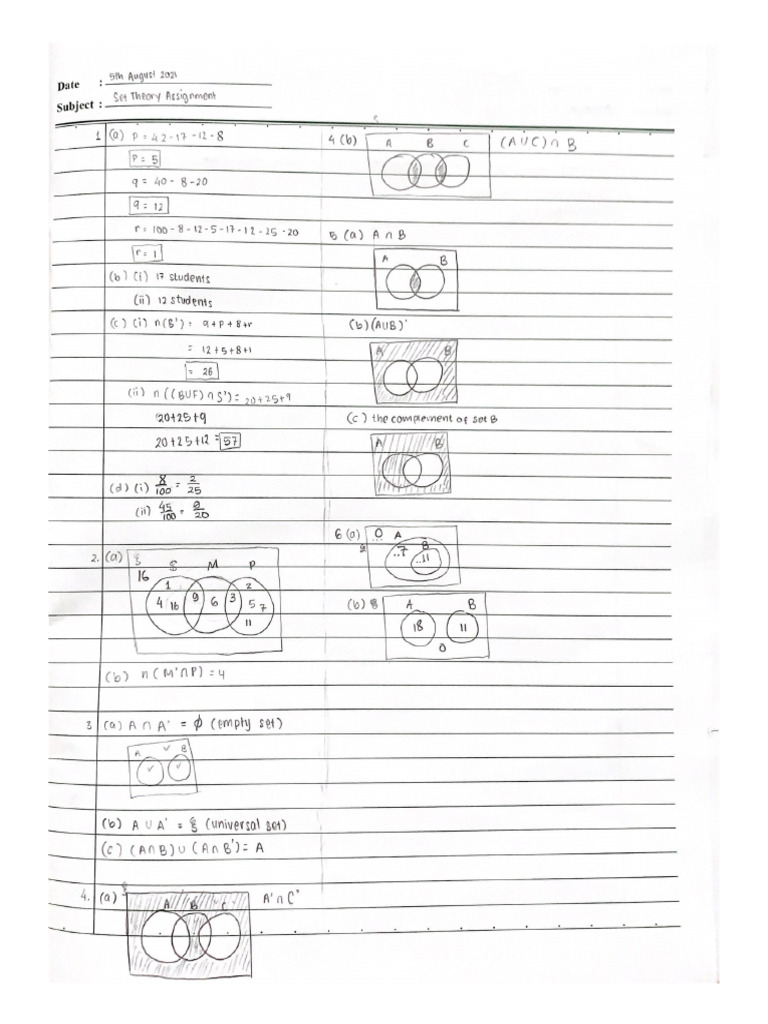 Date : 5th August 2021
Subject : Set Theory Assignment
1 (a) P = 42-17-12-8
P = 5
q = 40 - 8 -20
q = 12
r = 100 - 8 - 12 - 5 - 17 - 12 - 25 - 20
r = 1
(b) (i) 17 students
(ii) 12 students
(c) (i) n(B') = q+p+8+r
= 12+5+8+1
= 26
(ii) n((BUF)∩S') = 20+25+9
20+25+9
20+25+12 = 57
(d) (i) 8/100 = 2/25
(ii) 45/100 = 9/20
2. (a) ξ
S M P
16
1 2
4 16 9 6 3 5 7
11
(b) n(M'∩P) = 4
3 (a) A ∩ A' = ϕ (empty set)
A B
(b) A ∪ A' = ξ (universal set)
(c) (A∩B) ∪ (A∩B') = A
4. (a) ξ
A B C
A'∩C'
4 (b) A B C (AUC) ∩ B
5 (a) A ∩ B
A B
(b) (AUB)'
A B
(c) the complement of set B
A B
6 (a) 0 A
B
..7 ..11
(b) ξ A B
18 11
0